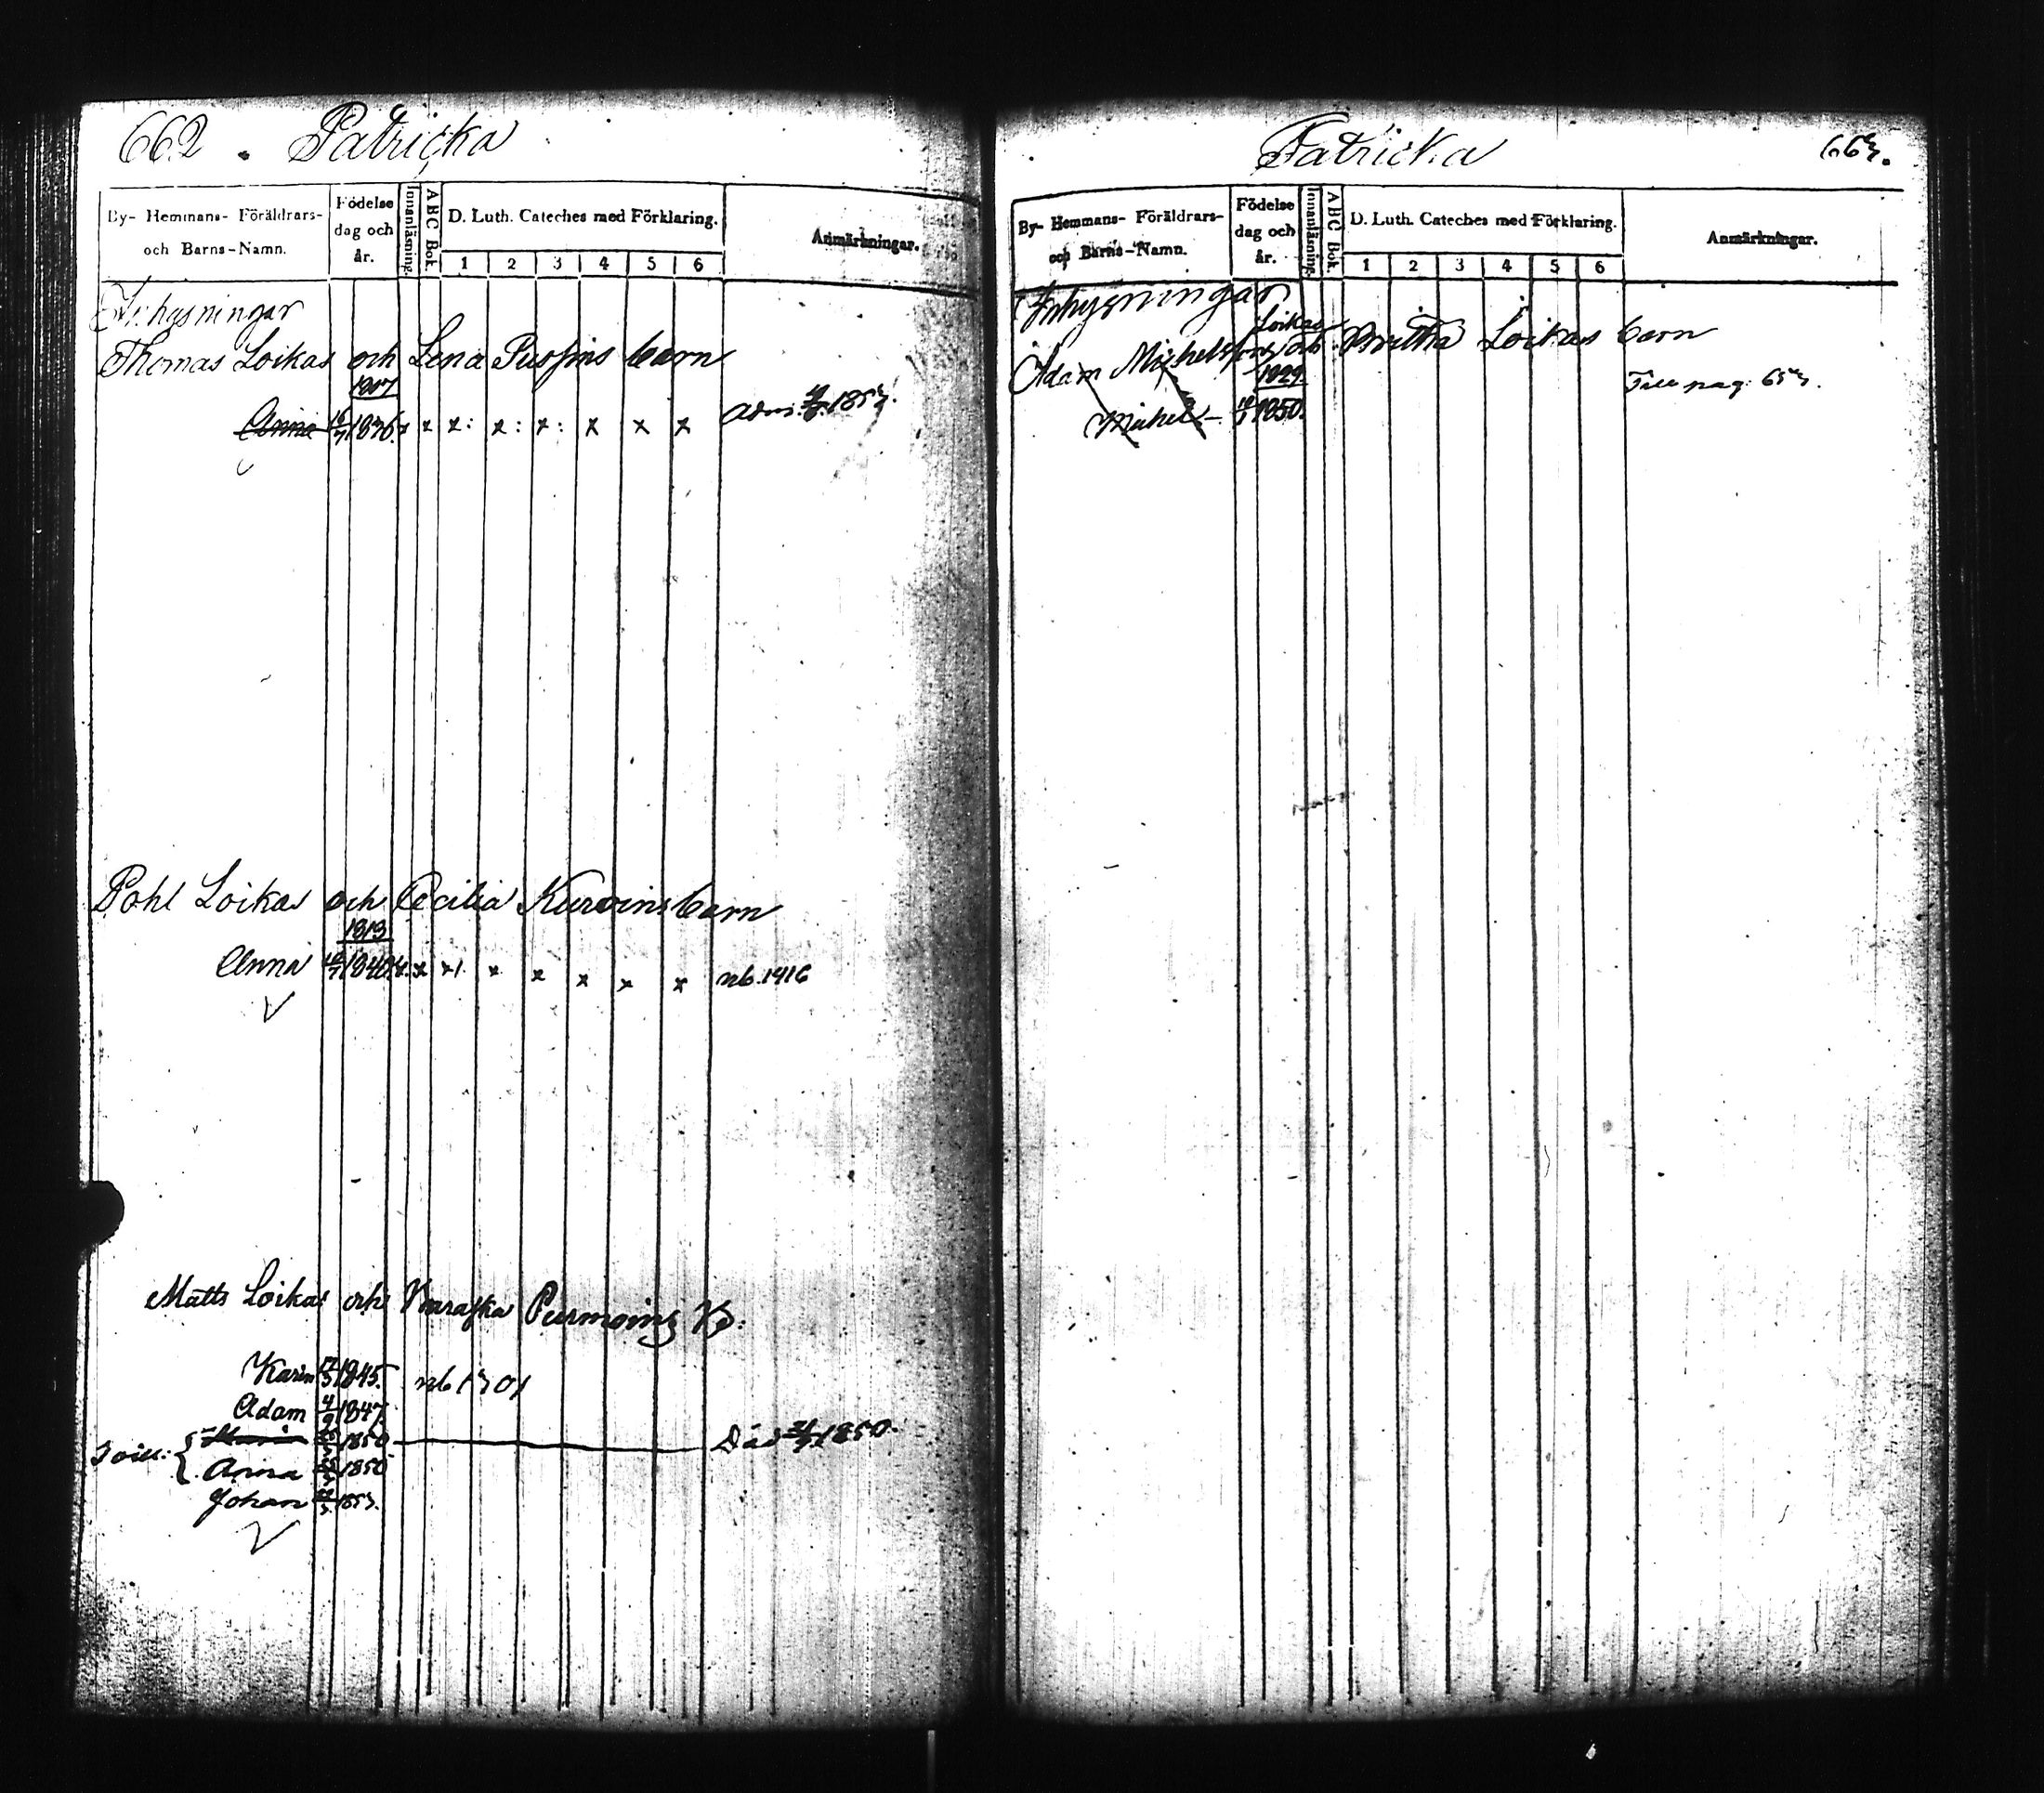 662. Patricka
By- Hemmans- Föräldrars- och Barns-Namn.
Födelse dag och år.
Innanläsning.
A B C Bok.
D. Luth. Cateches med Förklaring.
1 2 3 4 5 6
Anmärkningar.
Inhysningar
Thomas Loikas och Lena Pussins barn
1817
Anna 16/7 1836. x x x: x: x: x x x Adm. 1853.
Pohl Loikas och Cecilia Kurvins barn
1819
Anna 1840. x. x x1. x x x x x nb. 1416
Matts Loikas och Purmoins
Karin 17/3 1845. nb 1301
Adam 4/9 1847.
Maria 1850 Död 1850.
Anna 1850
Johan 1853.
Patricka 663.
By- Hemmans- Föräldrars- och Barns-Namn.
Födelse dag och år.
Innanläsning.
A B C Bok.
D. Luth. Cateches med Förklaring.
1 2 3 4 5 6
Anmärkningar.
Inhysningar
Loikas
Adam Michelsson och Britha Loikas barn
1829.
Till pag. 653.
Michel - 1850.